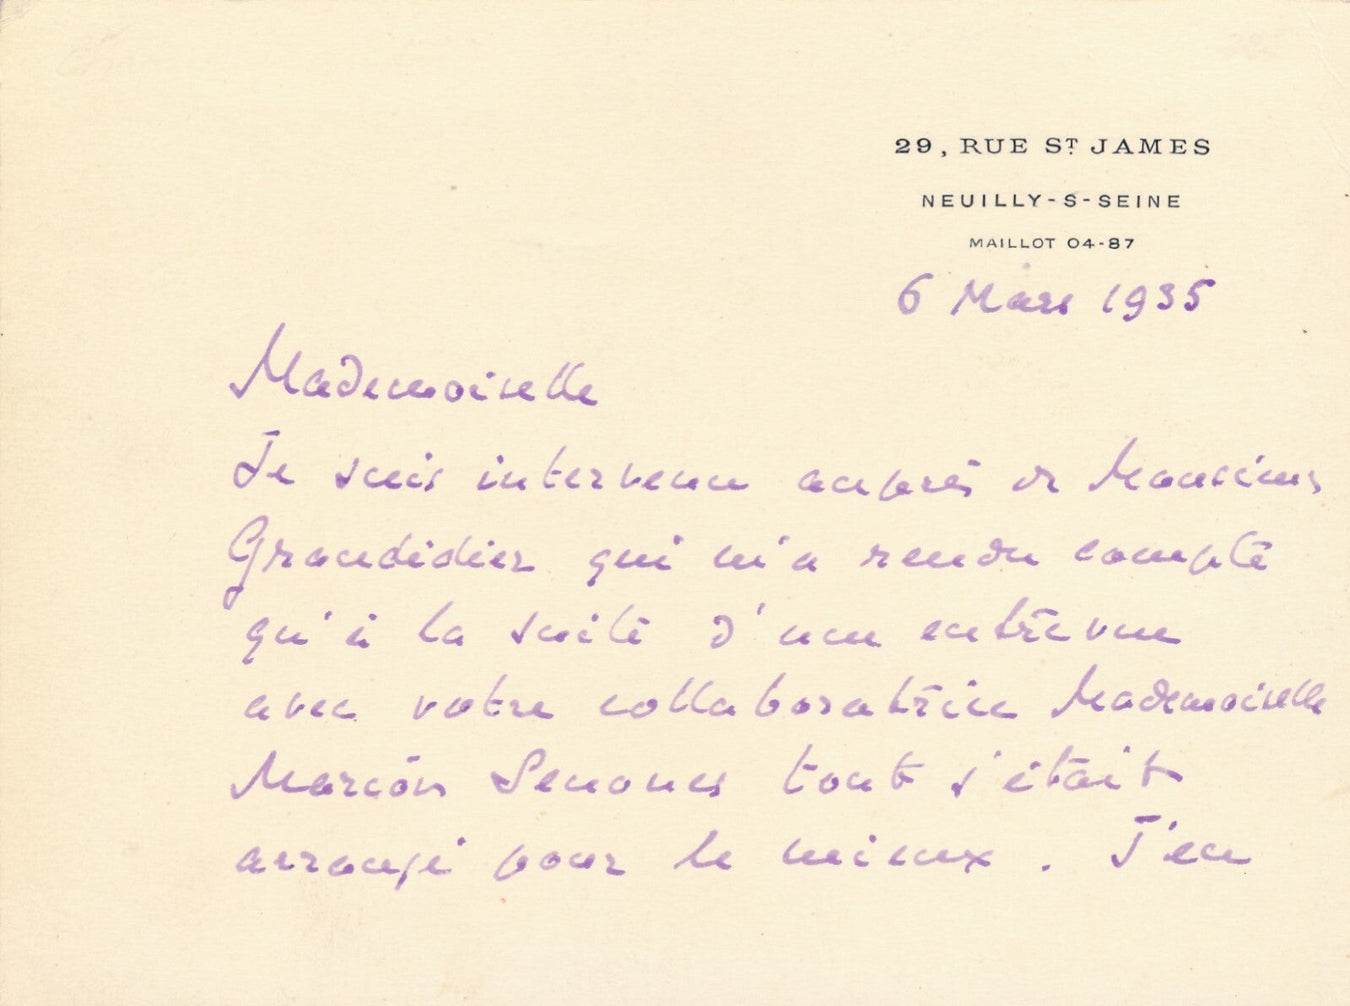 29, RUE ST JAMES
NEUILLY-S-SEINE
MAILLOT 04-87
6 Mars 1935
Mademoiselle
Je suis intervenu auprès de Monsieur
Grandidier qui m'a rendu compte
qu'à la suite d'une entrevue
avec votre collaboratrice Mademoiselle
tout s'était
arrangé pour le mieux. J'en